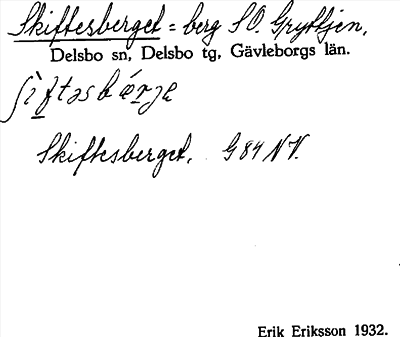 Skiftesberget = berg SO. Gryttjen,
Delsbo sn, Delsbo tg, Gävleborgs län.
Skiftesberget, G84 NV.
Erik Eriksson 1932.